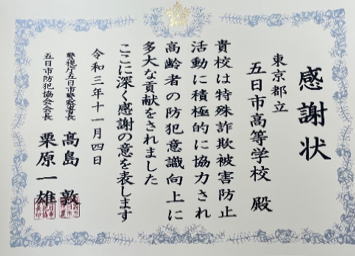 感謝状
東京都立
五日市高等学校 殿
貴校は特殊詐欺被害防止
活動に積極的に協力され
高齢者の防犯意識向上に
多大な貢献をされました
ここに深く感謝の意を表します
令和三年十一月四日
警視庁五日市警察署長 髙島 敦
五日市防犯協会会長 栗原一雄